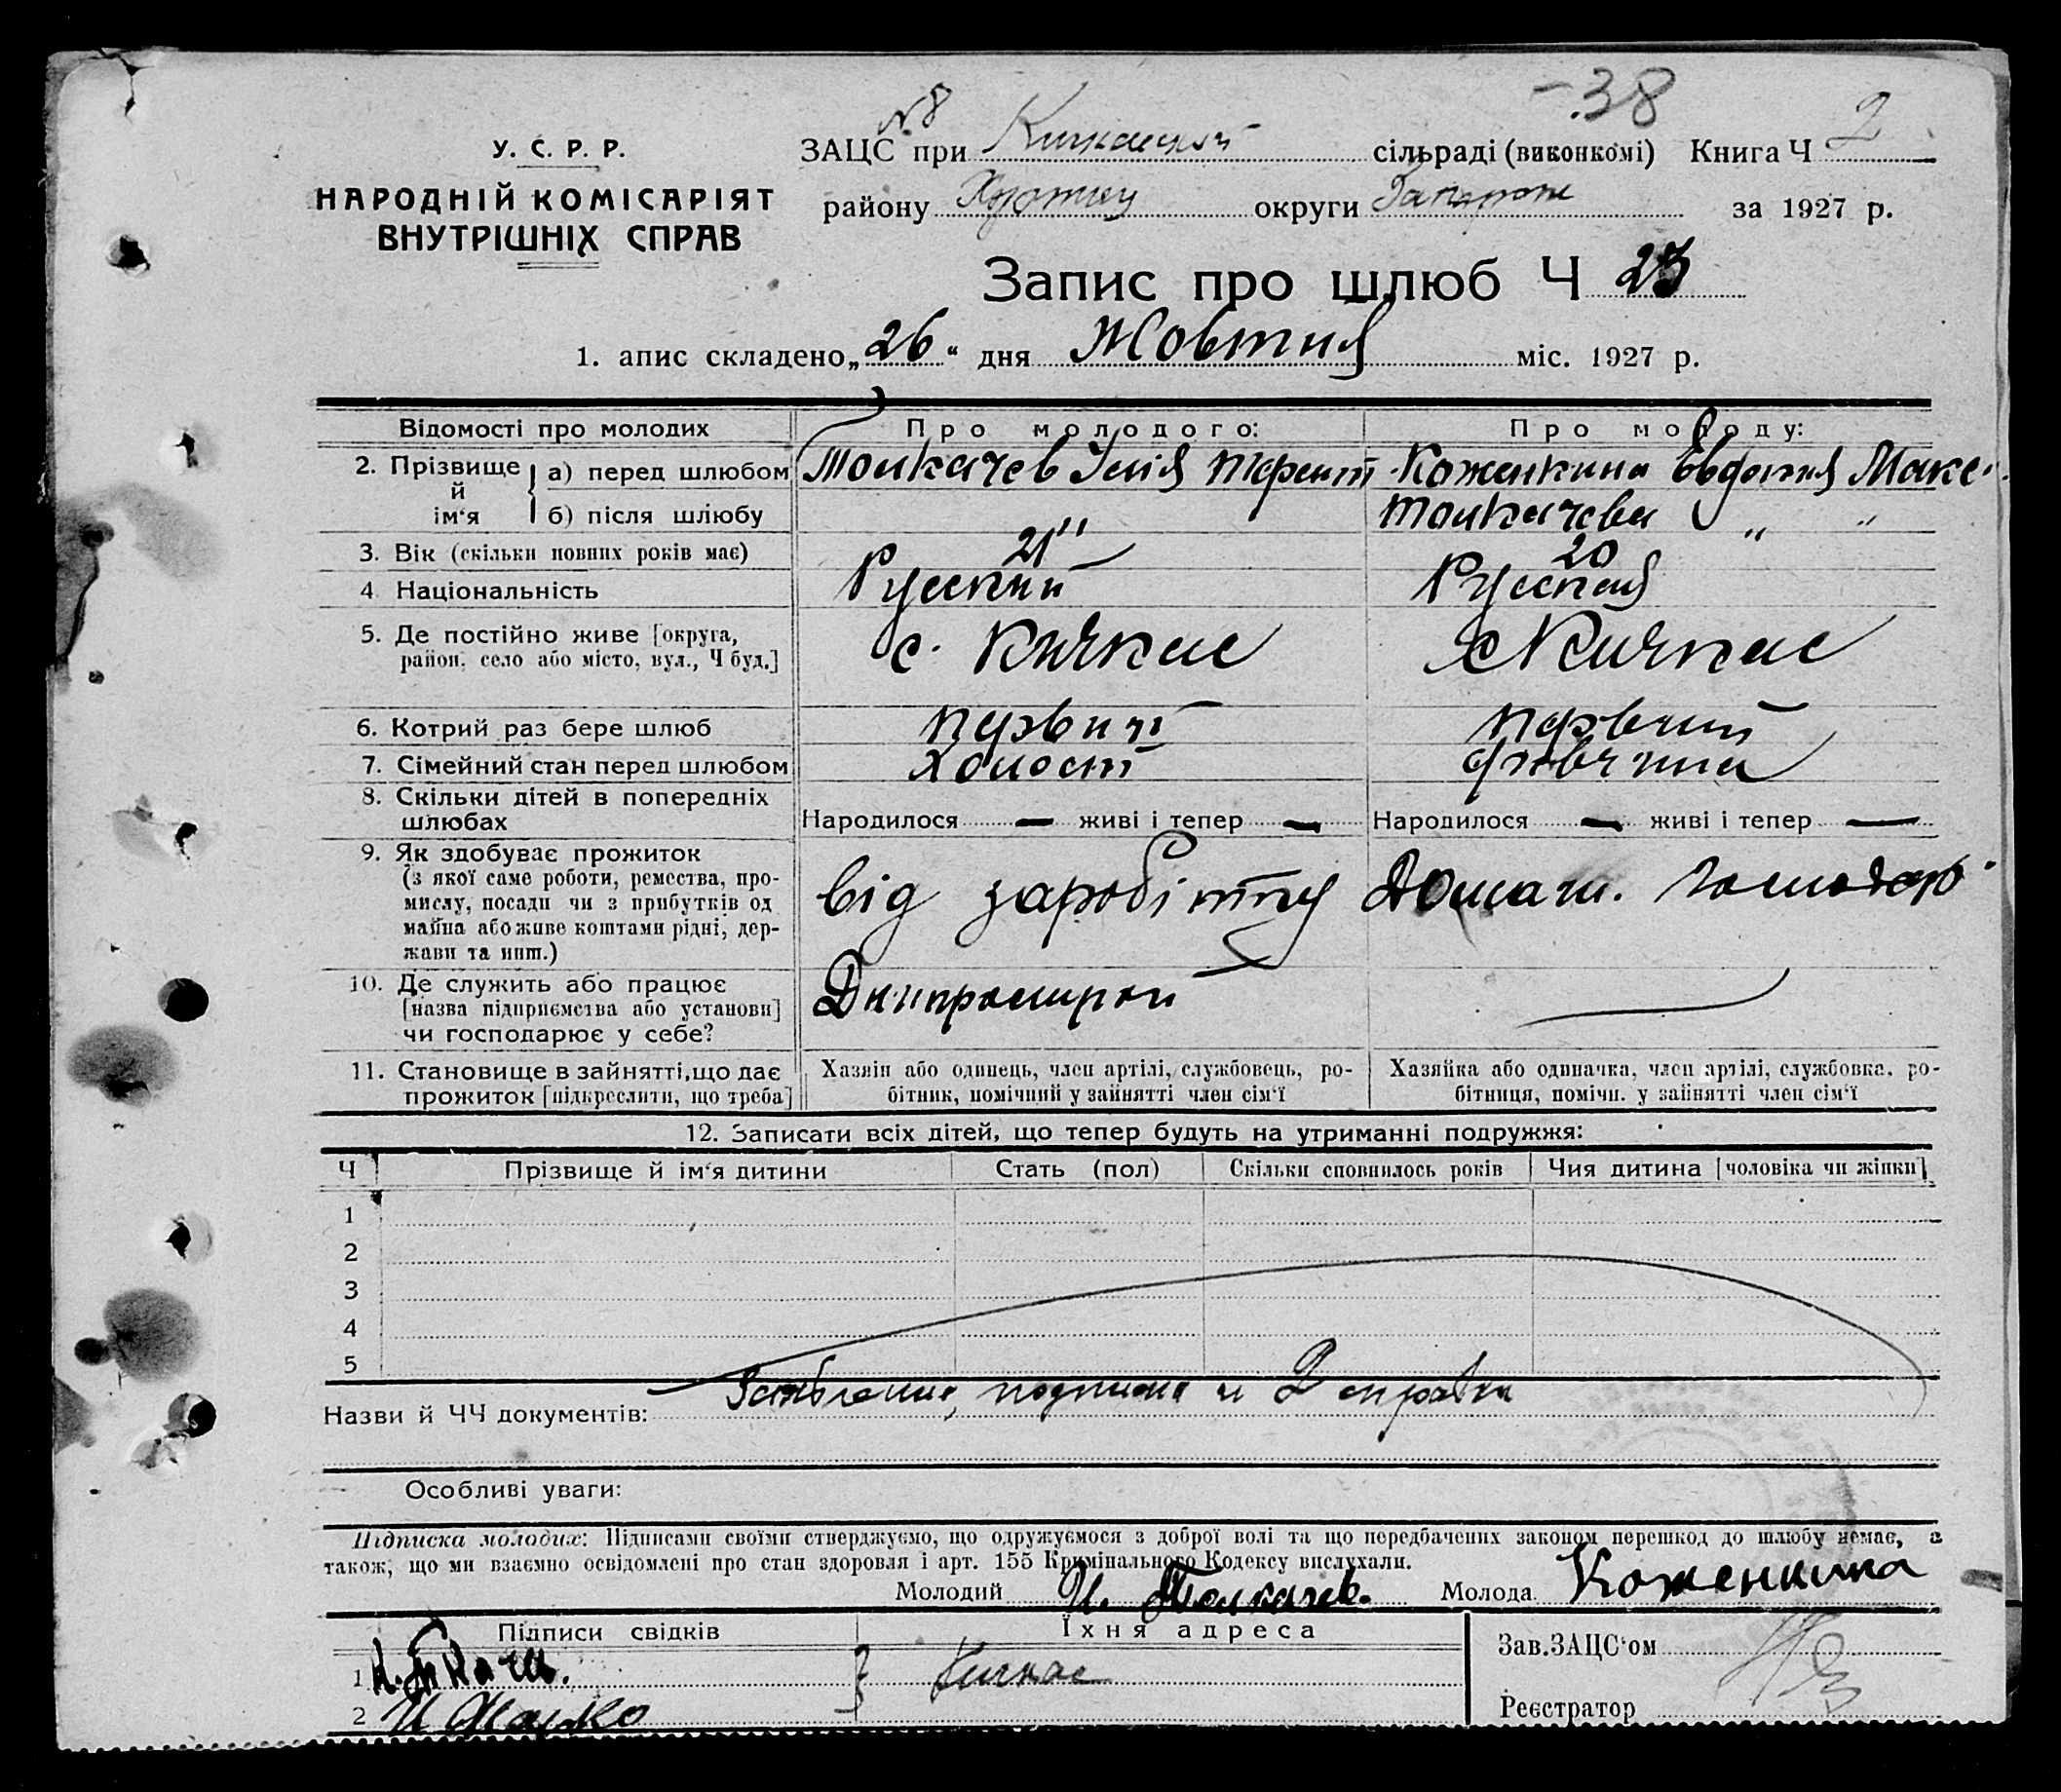 -38
№ 8
У. С. Р. Р.
НАРОДНІЙ КОМІСАРІЯТ
ВНУТРІШНІХ СПРАВ
ЗАЦС при Кичкаській сільраді (виконкомі) Книга Ч 2
району Хортиц округи Запорож за 1927 р.
Запис про шлюб Ч 23
1. апис складено „26“ дня Жовтня міс. 1927 р.
Відомості про молодих Про молодого: Про молоду:
2. Прізвище й ім‘я а) перед шлюбом Толкачев Ілія Терент. Коженкина Евдокия Макс.
б) після шлюбу Толкачева „ „
3. Вік (скільки повних років має) 21 20
4. Національність Русский Русская
5. Де постійно живе [округа, с. Кичкас с Кичкас
район, село або місто, вул., Ч буд.]
6. Котрий раз бере шлюб первий первий
7. Сімейний стан перед шлюбом Холост дівчина
8. Скільки дітей в попередніх
шлюбах Народилося — живі і тепер — Народилося — живі і тепер —
9. Як здобуває прожиток
(з якої саме роботи, ремества, про-
мислу, посади чи з прибутків од від заробітку Домашн. господар
майна або живе коштами рідні, дер-
жави та инш.)
10. Де служить або працює Дніпрострой —
[назва підприємства або установи]
чи господарює у себе?
11. Становище в зайнятті, що дає Хазяїн або одинець, член артілі, службовець, ро- Хазяйка або одиначка, член артілі, службовка, ро-
прожиток [підкреслити, що треба] бітник, помічний у зайнятті член сім‘ї бітниця, помічн. у зайнятті член сім‘ї
12. Записати всіх дітей, що тепер будуть на утриманні подружжя:
Ч Прізвище й ім‘я дитини Стать (пол) Скільки сповнилось років Чия дитина [чоловіка чи жінки]
1
2
3
4
5
Назви й ЧЧ документів: Заявление, подписка и 2 справки
Особливі уваги:
Підписка молодих: Підписами своїми стверджуємо, що одружуємося з доброї волі та що передбачених законом перешкод до шлюбу немає, а
також, що ми взаємно освідомлені про стан здоровля і арт. 155 Кримінального Кодексу вислухали.
Молодий И. Толкачев. Молода Коженкина
Підписи свідків Їхня адреса
1 Кичкас
2 И
Зав.ЗАЦС‘ом
Реєстратор